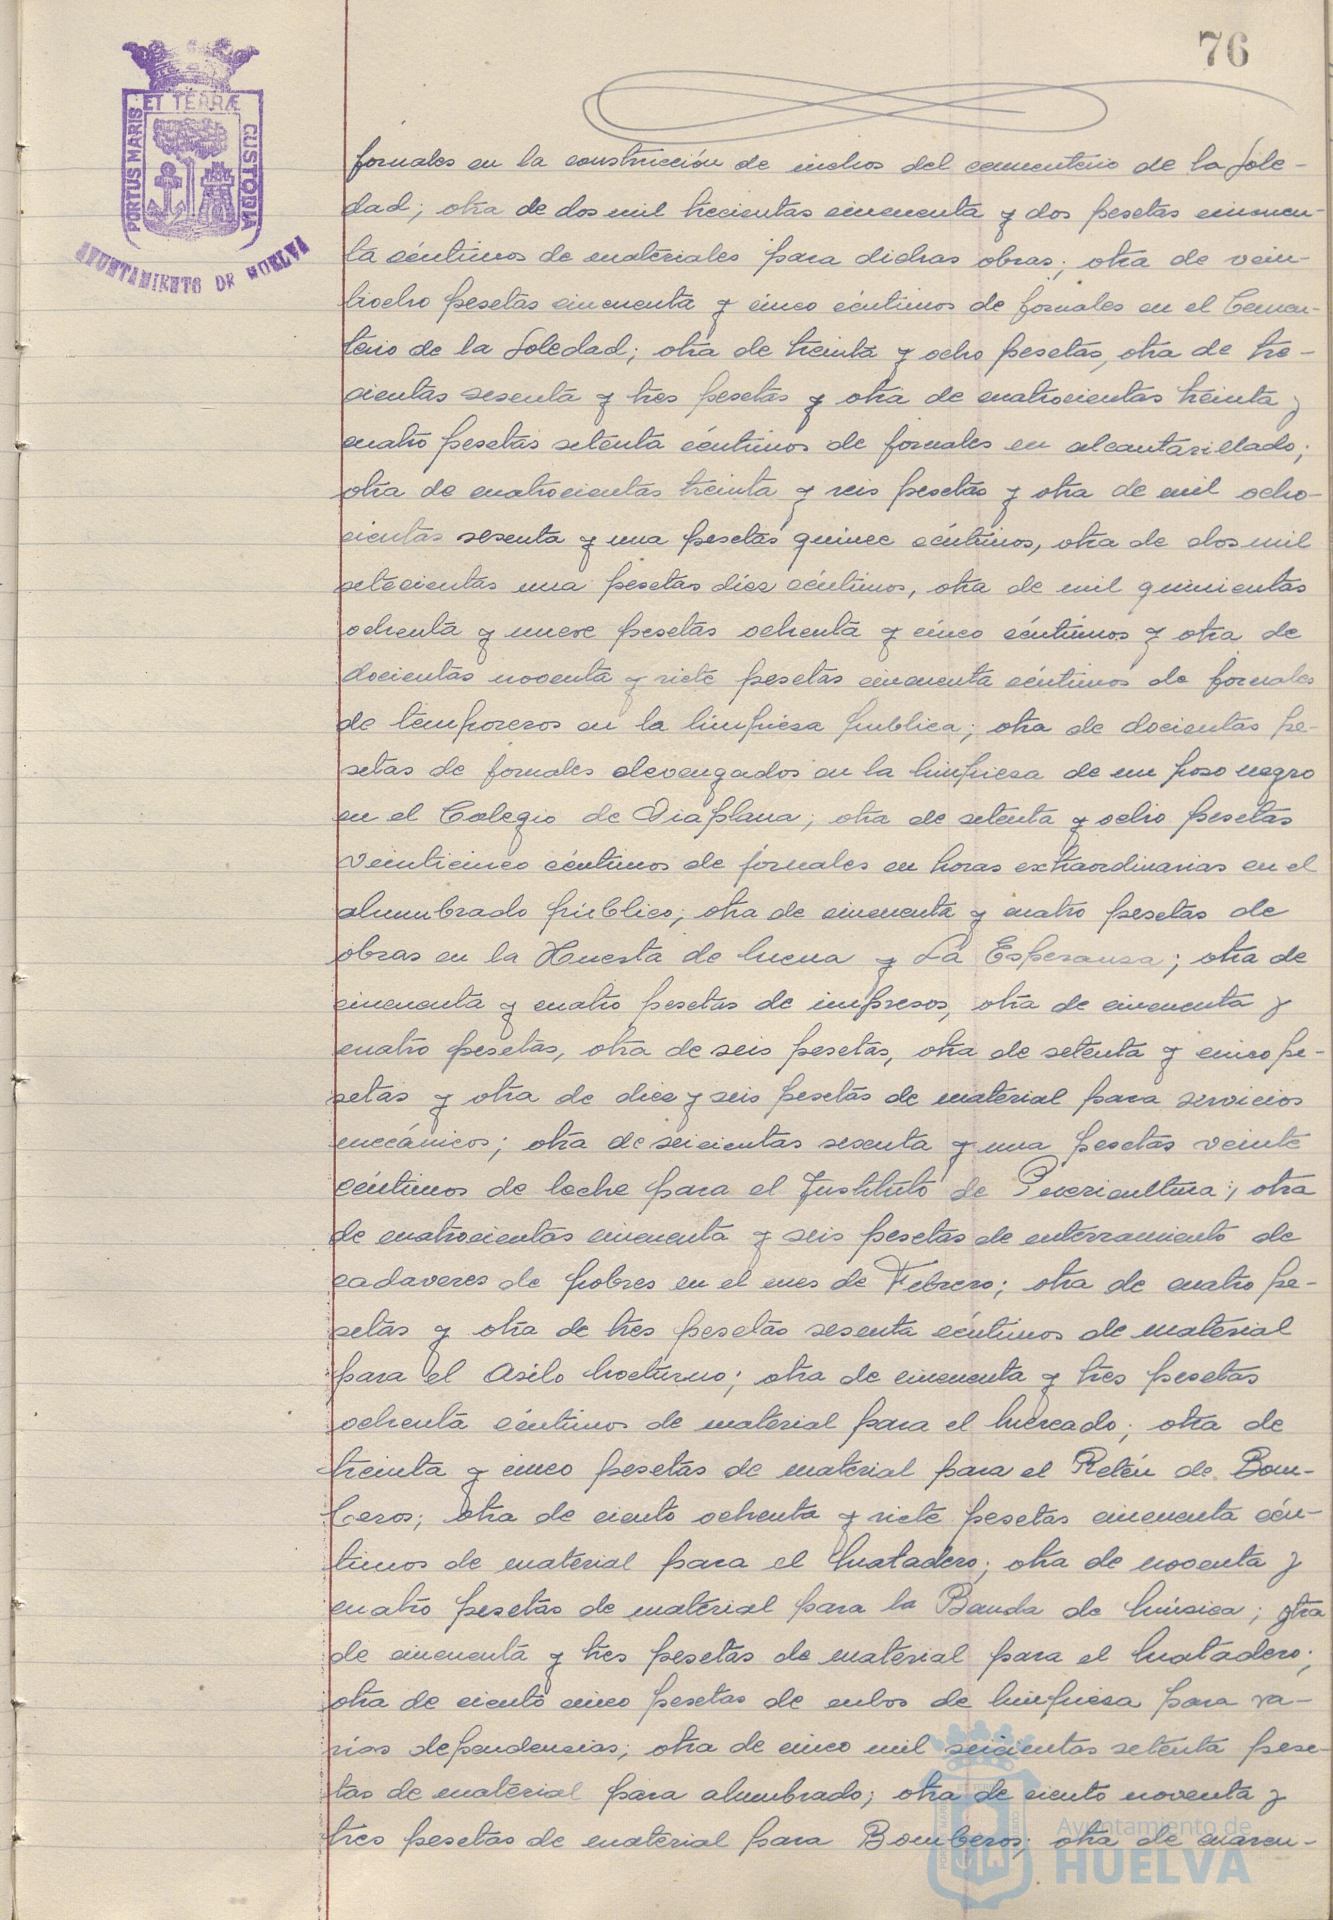 76
PORTUS MARIS ET TERRÆ CUSTODIA
AYUNTAMIENTO DE HUELVA
jornales en la construcción de nichos del cementerio de la Sole-
dad; otra de dos mil trecientas cincuenta y dos pesetas cincuen-
ta céntimos de materiales para dichas obras; otra de vein-
tiocho pesetas cincuenta y cinco céntimos de jornales en el Cemen-
terio de la Soledad; otra de treinta y ocho pesetas, otra de tre-
cientas sesenta y tres pesetas y otra de cuatrocientas treinta y
cuatro pesetas setenta céntimos de jornales en alcantarillado;
otra de cuatrocientas treinta y seis pesetas y otra de mil ocho-
cientas sesenta y una pesetas quince céntimos, otra de dos mil
setecientas una pesetas diez céntimos, otra de mil quinientas
ochenta y nueve pesetas ochenta y cinco céntimos y otra de
docientas noventa y siete pesetas cincuenta céntimos de jornales
de temporeros en la limpieza publica; otra de docientas pe-
setas de jornales devengados en la limpiesa de un poso negro
en el Colegio de Viaplana; otra de setenta y ocho pesetas
veinticinco céntimos de jornales en horas extraordinarias en el
alumbrado público; otra de cincuenta y cuatro pesetas de
obras en la Huerta de Mena y La Esperanza; otra de
cincuenta y cuatro pesetas de impresos, otra de cincuenta y
cuatro pesetas, otra de seis pesetas, otra de setenta y cinco pe-
setas y otra de diez y seis pesetas de material para servicios
mecánicos; otra de seicientas sesenta y una pesetas veinte
céntimos de leche para el Instituto de Puericultura; otra
de cuatrocientas cincuenta y seis pesetas de enterramiento de
cadaveres de pobres en el mes de Febrero; otra de cuatro pe-
setas y otra de tres pesetas sesenta céntimos de material
para el Asilo Nocturno; otra de cincuenta y tres pesetas
ochenta céntimos de material para el Mercado; otra de
treinta y cinco pesetas de material para el Retén de Bom-
beros; otra de ciento ochenta y siete pesetas cincuenta cén-
timos de material para el Matadero; otra de noventa y
cuatro pesetas de material para la Banda de Música; otra
de cincuenta y tres pesetas de material para el Matadero;
otra de ciento cinco pesetas de cubos de limpiesa para va-
rias dependencias; otra de cinco mil seicientas setenta pese-
tas de material para alumbrado; otra de ciento noventa y
tres pesetas de material para Bomberos; otra de cuaren-
Ayuntamiento de
HUELVA